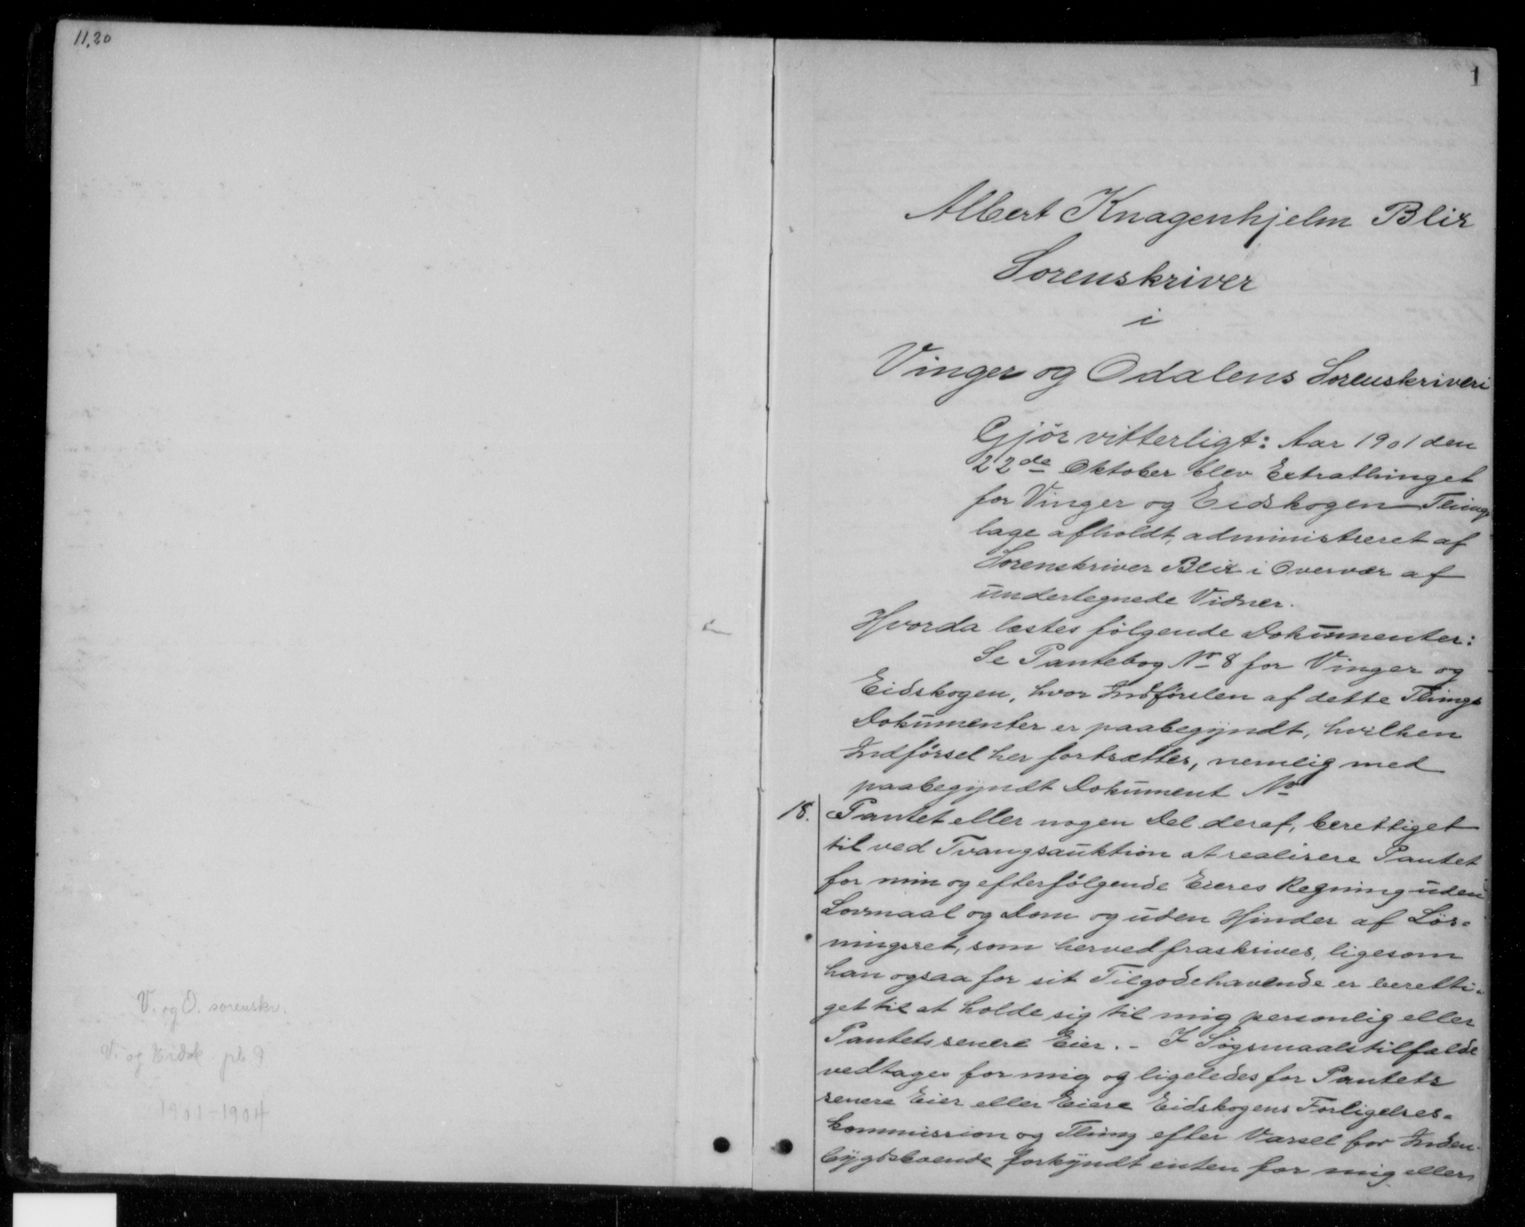 11,20
1
Albert Knagenhjelm Blix
Sorenskriver
i
Vinger og Odalens Sorenskriveri
Gjør vitterligt: Aar 1901 den
22de Oktober blev Extrathinget
for Vinger og Eidskogen Things
lage afholdt, administreret af
Sorenskriver Blix i Overvær af
undertegnede Vidner.
Hvorda læstes følgende Dokumenter:
Se Pantebog No 8 for Vinger og
Eidskogen, hvor Indførslen af dette Things
Dokumenter er paabegyndt, hvilken
Indførsel her fortsættes, nemlig med
paabegyndt Dokument No
18. Pantet eller nogen Del deraf, berettiget
til ved Tvangsauktion at realisere Pantet
for min og efterfølgende Eieres Regning uden
Lovmaal og Dom og uden Hinder af Løs-
ningsret, som herved fraskrives, ligesom
han ogsaa for sit Tilgodehavende er beretti-
get til at holde sig til mig personlig eller
Pantets senere Eier. - I Søgsmaalstilfælde
vedtages for mig og ligeledes for Pantets
senere Eier eller Eiere Eidskogens Forligelses-
commission og Thing efter Varsel for Inden-
bygdsboende forkyndt enten for mig eller
V. og O. sorenskr.
V. og Eidsk. pb. 9
1901-1904